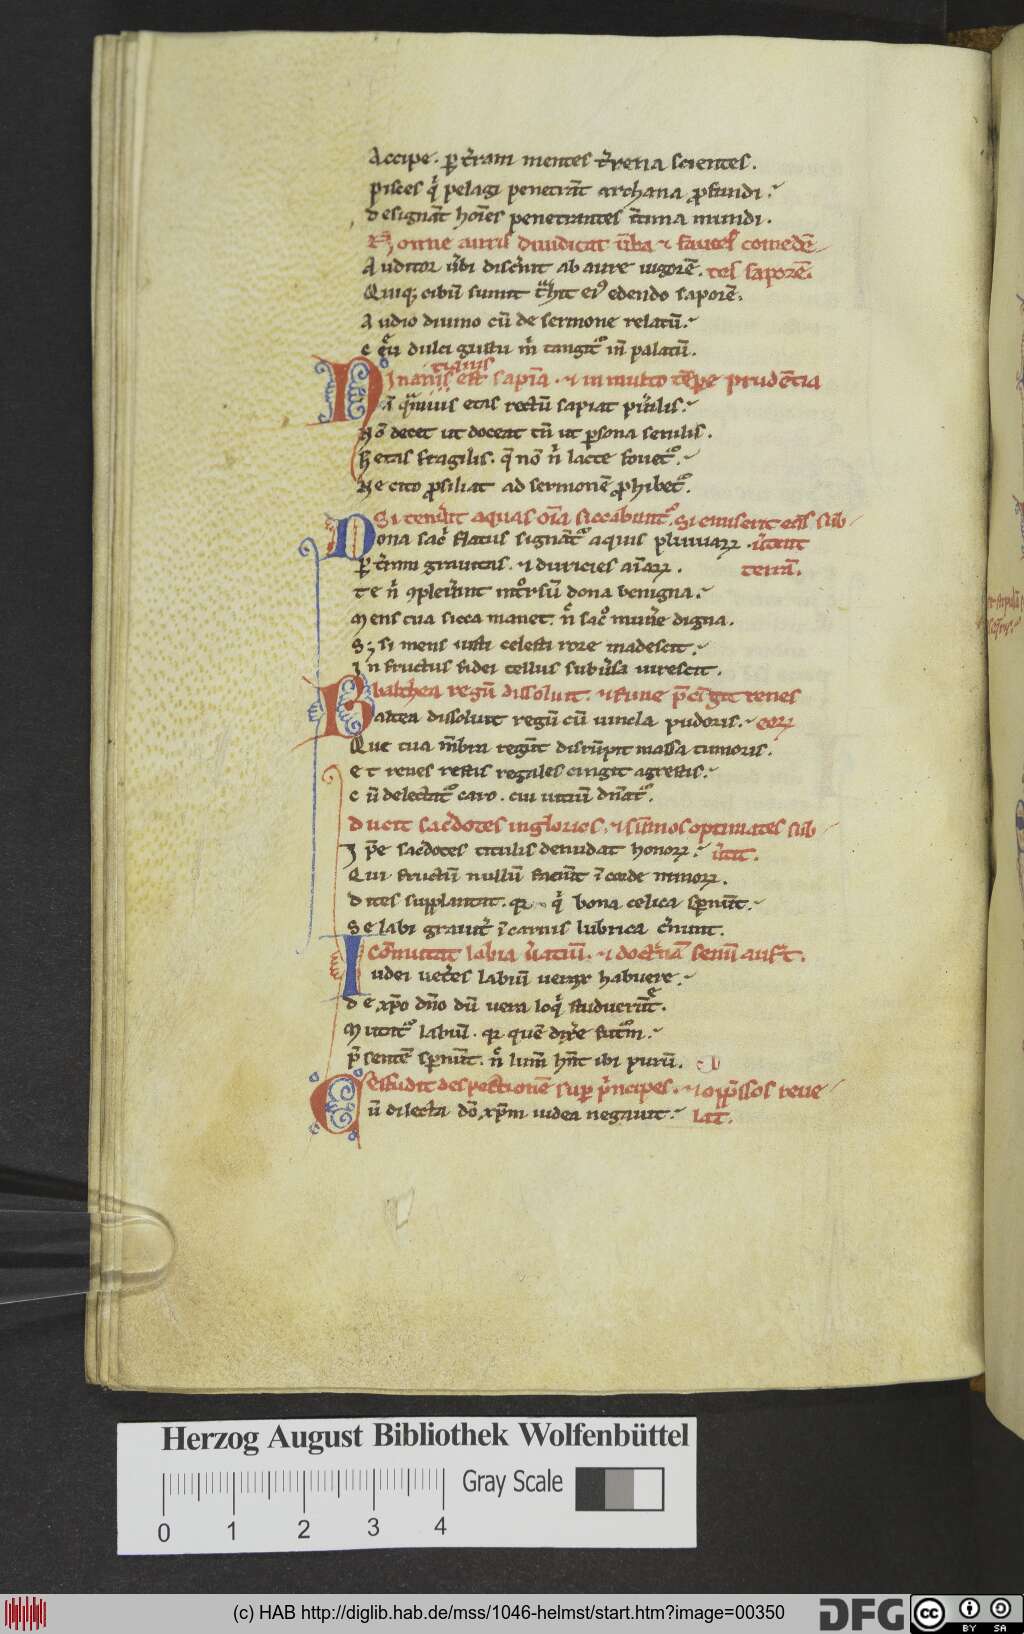 Accipe. ꝑ t̾ram mentes t̾rena scientes.
pisces q̾ pelagi penetrāt archana ꝓfundi.
designāt hoīes penetrantes ītima mundi.
Nonne auris diiudicat ūba ⁊ fauces comedē
Auditor ūbi discnit ab aure uigorē. tes saporē.
Quiqꝫ cibū sumit edendo saporē.
Audio diuino cū de sermone relatū.
dulci gustu tangit᷒ palatū.
est sapīa. ⁊ in multo tēpe prudētia
etas rectū sapiat
Nō decet ut doceat ut ꝑsona senilis.
etas fragilis. q̄ nō lacte fouet᷒.
Ne cito ꝓsiliat ad sermonē ꝓhibet᷒.
Si tenūit aquas oīa siccabunt᷒. Si emiserit eas sub
Dona sac̾ flatus signāt᷒ aquis pluuiaꝝ. ūtent
grauitas. ⁊ duricies aīaꝝ. terrā.
te dona benigna.
Mens tua sicca manet. sac̾ digna.
Sꝫ si mens iusti celesti rore madescit.
In fructus fidei tellus subūsa uirescit.
Baltheā regū dissoluit. ⁊ fune p̄cīgit renes
Baltea dissoluit regū cū uincla pudoris. eoꝝ
Que tua mēbra regūt disrūpit massa tumoris.
Et renes restis regales cingit agrestis.
Cū delectat᷒ caro. cui uitiū dn̄at᷒.
Ducit sac̾dotes inglorios. ⁊ sūmos optimates sub
Ipse sac̾dotes titulis denudat honoꝝ. ūtit.
Qui fructū nullū faciūt ī corde minoꝝ.
Dites supplantat. bona celica spernūt.
Se labi grauit̾ ī carnis lubrica c̾nunt.
Cōmutat labia ūatiū. ⁊ doct̾nā senū aufert.
Iudei uet̾es labiū uerax habuere.
De xp̄o dn̄o dū uera loq̾ studuerūt.
Mutat᷒ labiū. quē
p̄sentē spernūt. lumē hn̄t ibi purū.
Effudit despectionē sup p̾ncipes. ⁊ opp̄ssos reue
Cū dilecta dō xp̄m iudea negauit. lat.
Herzog August Bibliothek Wolfenbüttel
Gray Scale
0 1 2 3 4
(c) HAB http://diglib.hab.de/mss/1046-helmst/start.htm?image=00350
DFG
cc BY SA